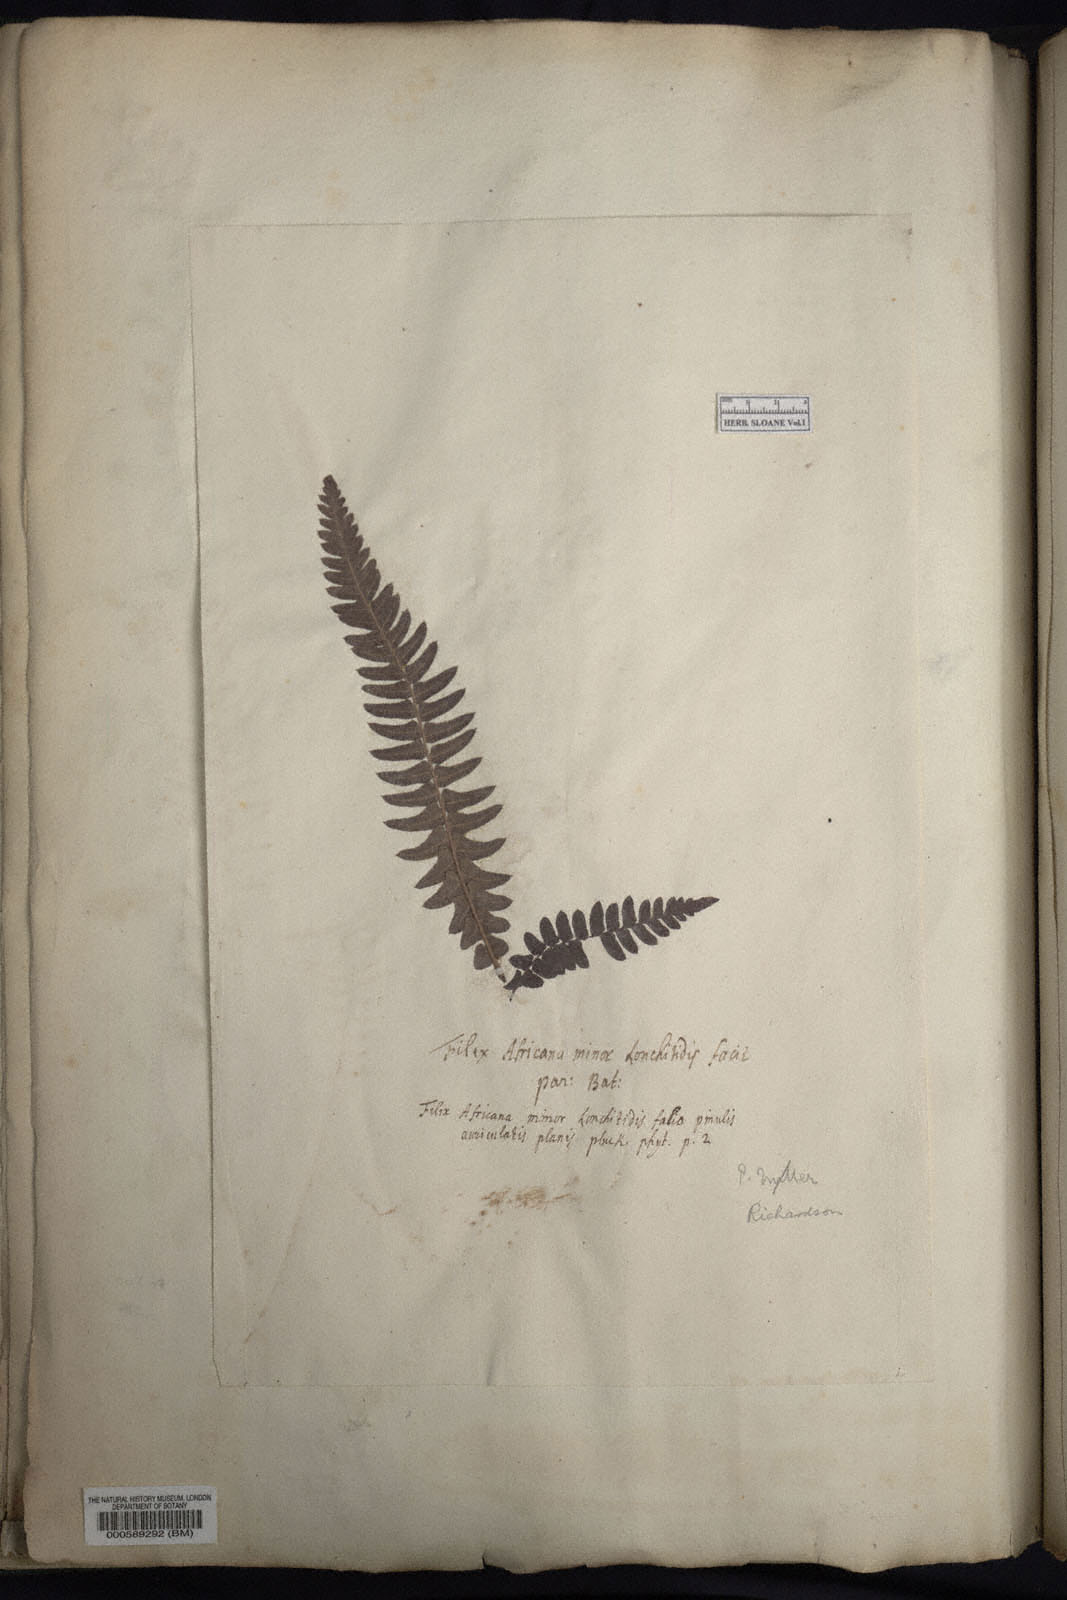 HERB. SLOANE Vol.1
Filex Africana minor Lonchitidis facie
par: Bat:
Filix Africana minor Lonchitidis folio pinulis
auriculatis planis pluk. phyt. p. 2
Richardson
THE NATURAL HISTORY MUSEUM, LONDON
DEPARTMENT OF BOTANY
000589292 (BM)